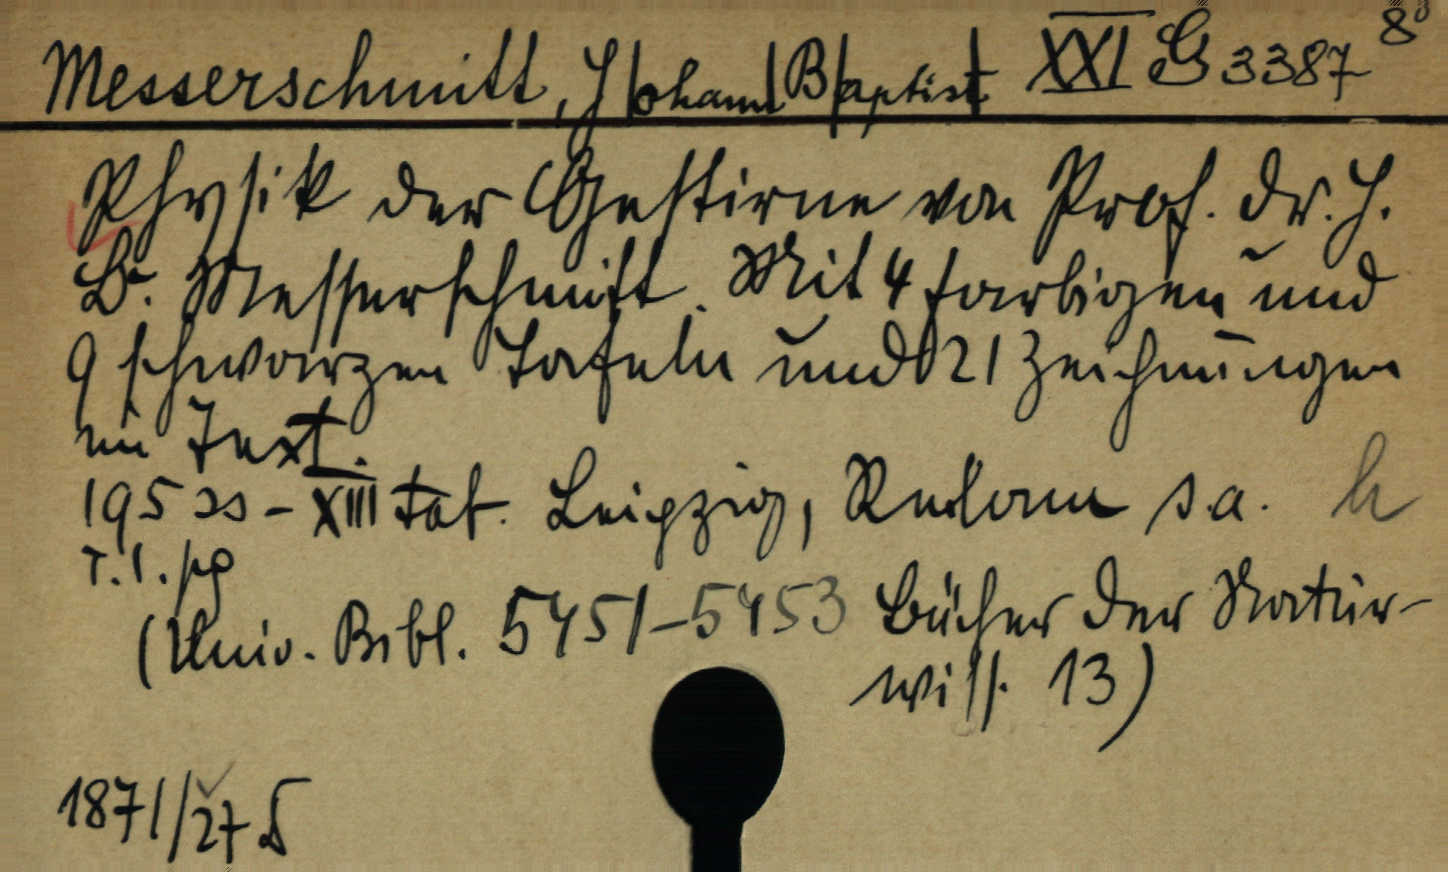 Messerschmitt, J|ohann| B|aptist| XXI G 3387 8°
Physik der Gestirne von Prof. Dr. J.
B. Messerschmitt. Mit 4 farbigen und
9 schwarzen Tafeln und 21 Zeichnungen
im Text.
195 SS - XIII Taf. Leipzig, Reclam s.a. h
T.l. pg
(Univ. Bibl. 5451-5453 Bücher der Natur-
wiss. 13)
1871//27